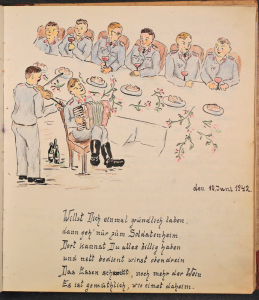 den 10. Juni 1942.
Willst Dich einmal gründlich laben,
dann geh' nur zum Soldatenheim.
Dort kannst Du alles billig haben
und nett bedient wirst obendrein
Das Essen schmeckt, noch mehr der Wein
Es ist gemütlich, wie einst daheim.